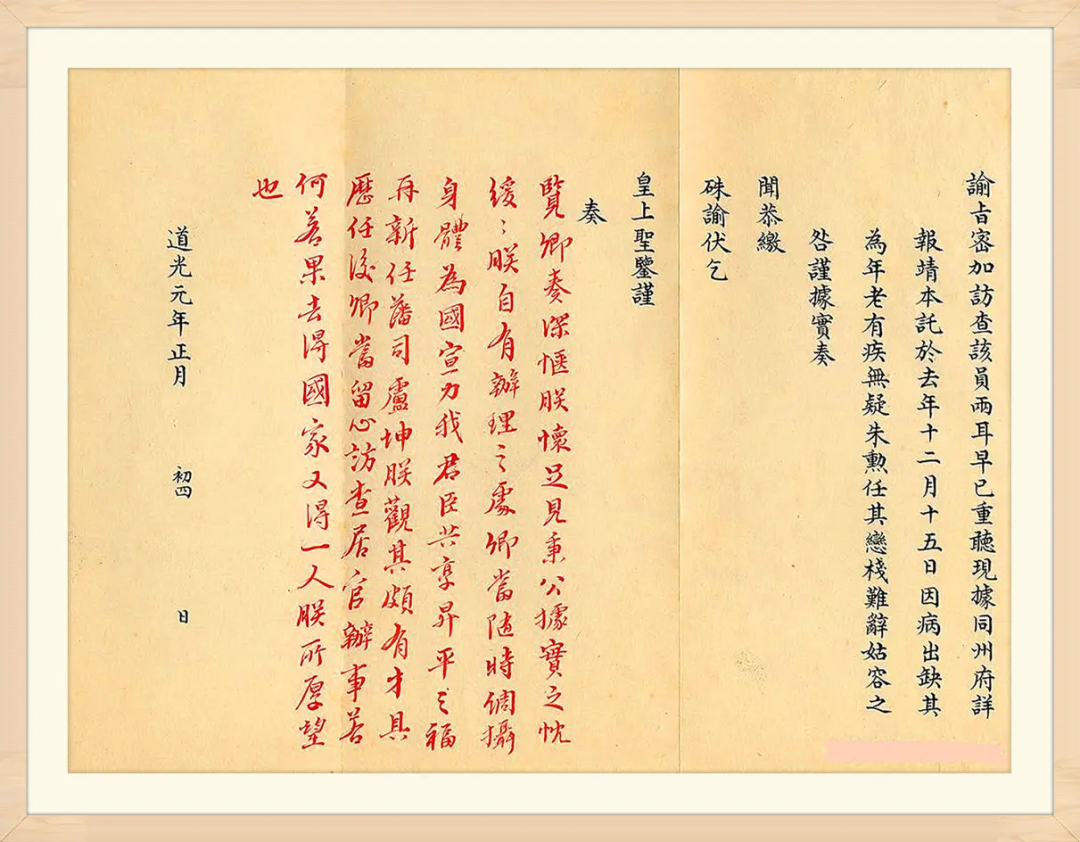 諭旨密加訪查該員兩耳早已重聽現據同州府詳
報靖本託於去年十二月十五日因病出缺其
為年老有疾無疑朱勳任其戀棧難辭姑容之
咎謹據實奏
聞恭繳
硃諭伏乞
皇上聖鑒謹
奏
覽卿奏深愜朕懷足見秉公據實之忱
緩〻朕自有辦理之處卿當随時調攝
身體為國宣力我君臣共享昇平之福
再新任藩司盧坤朕觀其頗有才具
歷任後卿當留心訪查居官辦事若
何若果去得國家又得一人朕所厚望
也
道光元年正月 初四 日